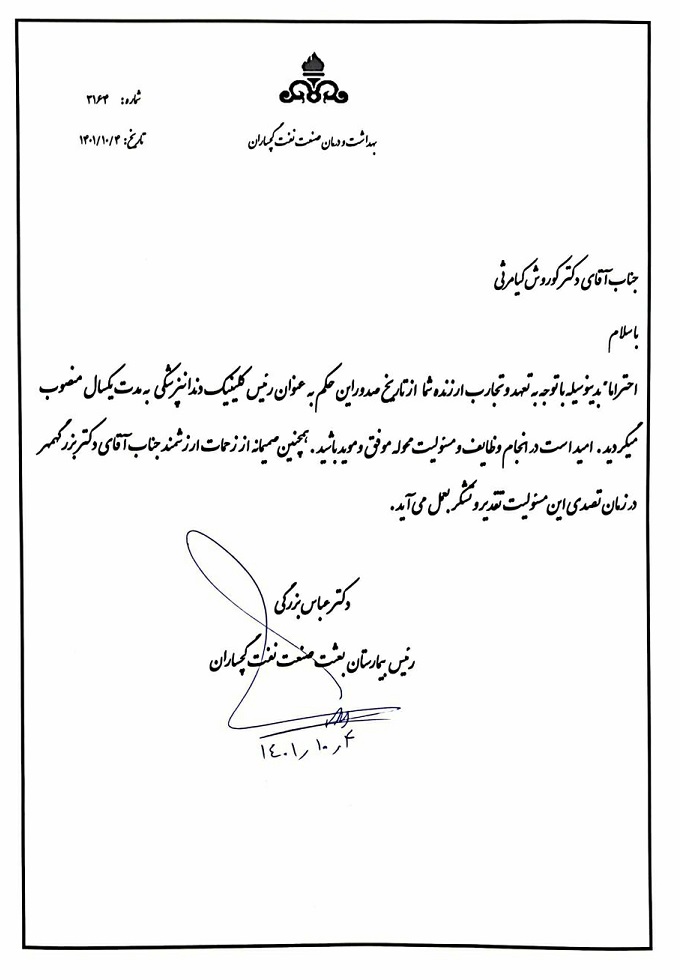 شماره: ۳۱۶۴
تاریخ: ۱۴۰۱/۱۰/۴
بهداشت و درمان صنعت نفت گچساران
جناب آقای دکتر کوروش کیامرثی
با سلام
احتراما" بدینوسیله با توجه به تعهد و تجارب ارزنده شما از تاریخ صدور این حکم به عنوان رئیس کلینیک دندانپزشکی به مدت یکسال منصوب
میگردید. امید است در انجام وظایف و مسئولیت محوله موفق و موید باشید. همچنین صمیمانه از زحمات ارزشمند جناب آقای دکتر بزرگمهر
در زمان تصدی این مسئولیت تقدیر و تشکر بعمل می آید.
دکتر عباس بزرگی
رئیس بیمارستان بعثت صنعت نفت گچساران
۱۴۰۱/۱۰/۴